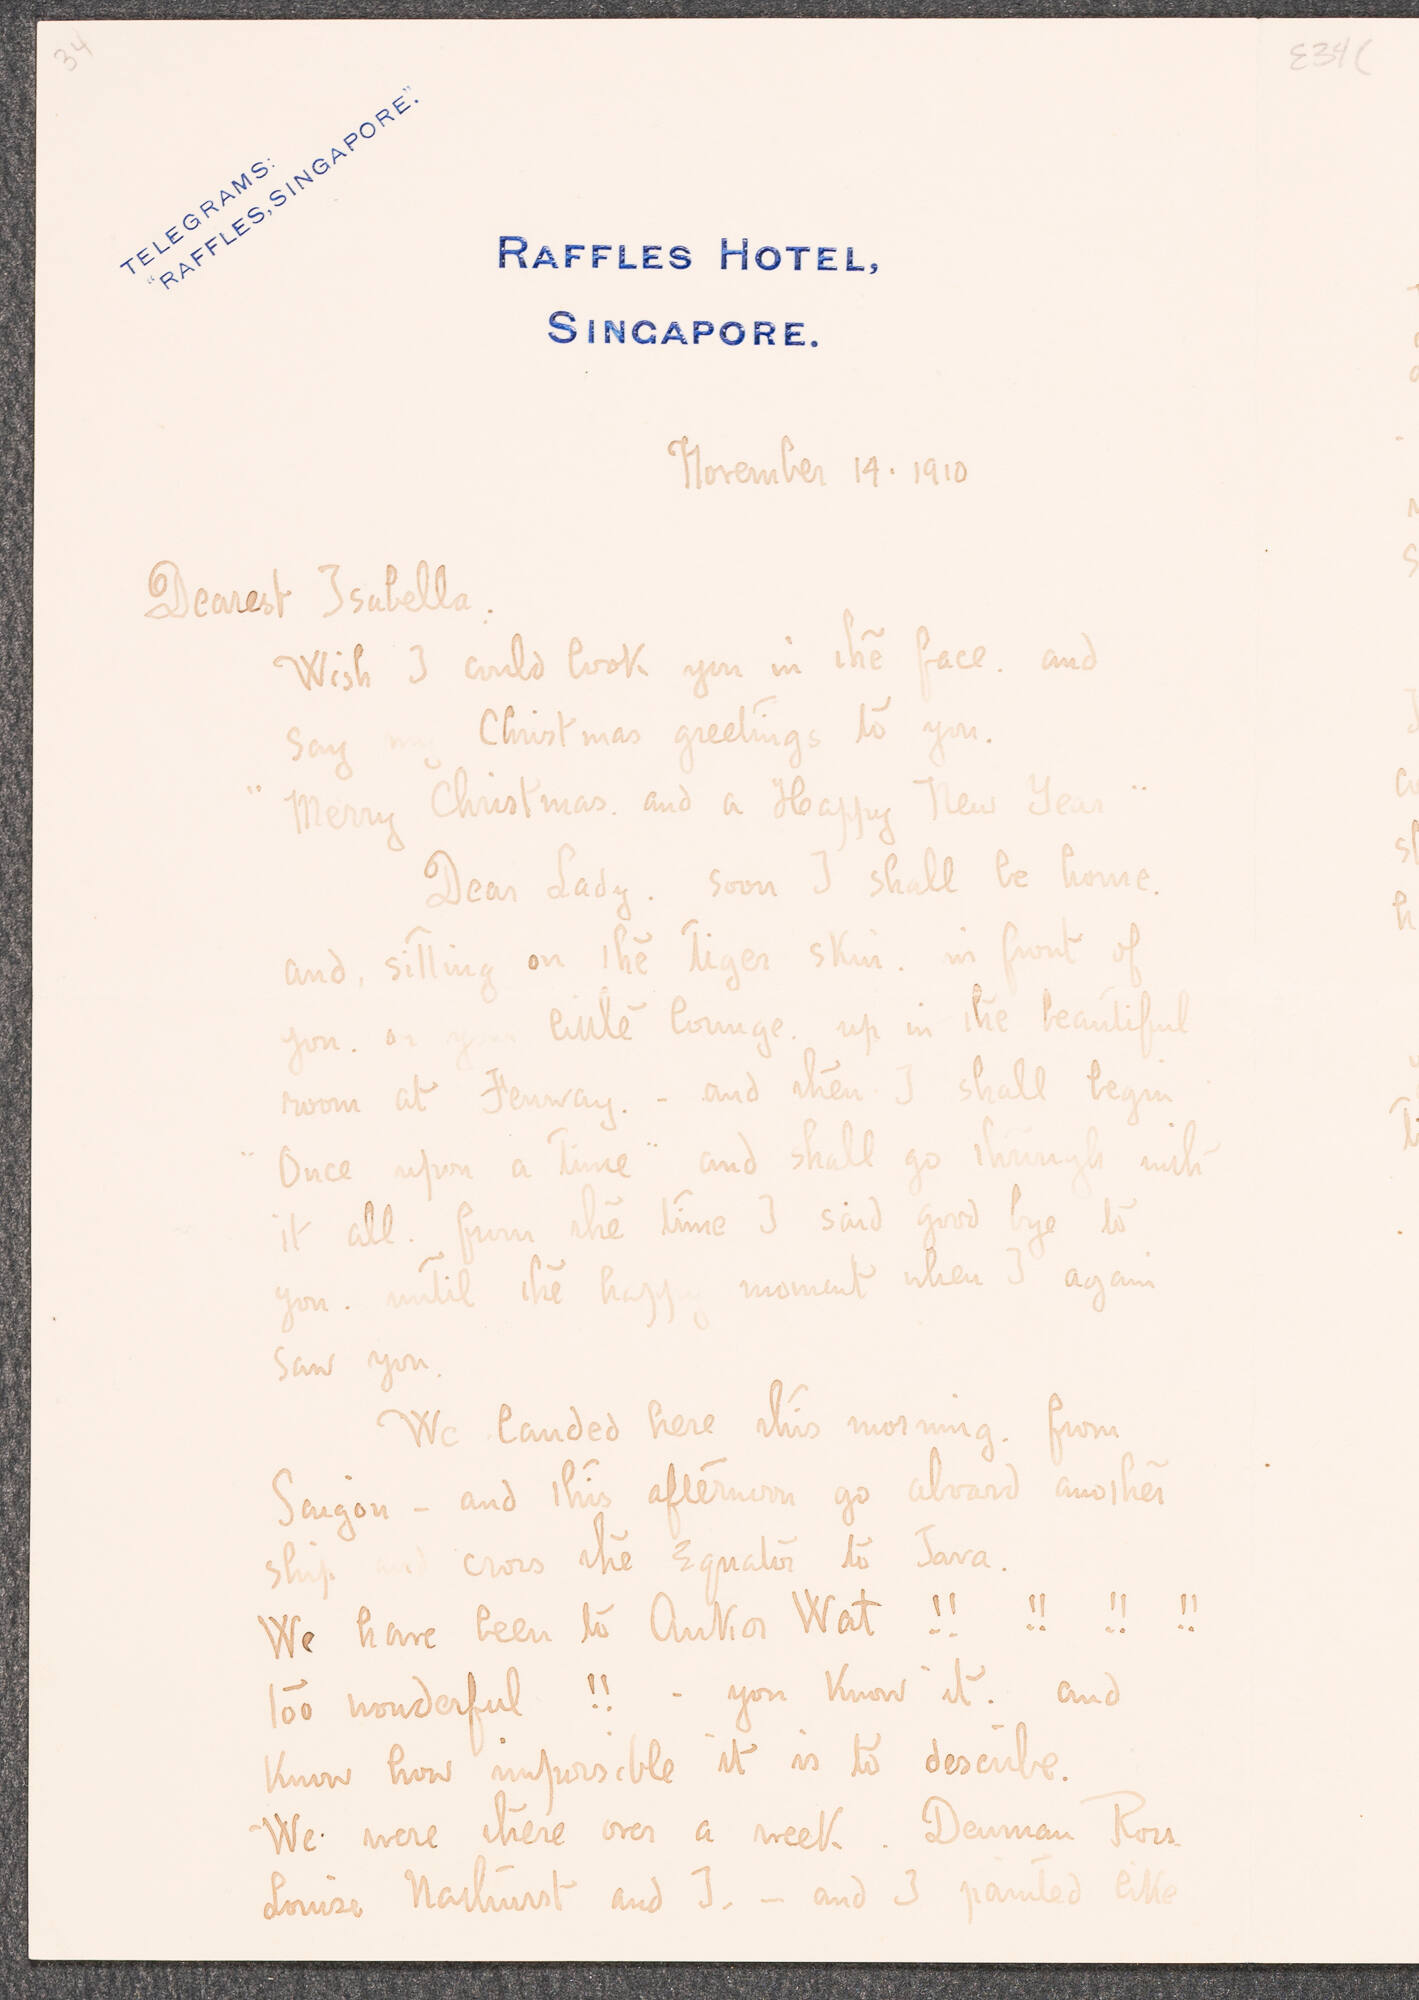 34
E34(
TELEGRAMS:
"RAFFLES, SINGAPORE."
RAFFLES HOTEL,
SINGAPORE.
November 14. 1910
Dearest Isabella.
Wish I could look you in the face. and
say my Christmas greetings to you.
"Merry Christmas. and a Happy New Year"
Dear Lady. soon I shall be home.
and, sitting on the Tiger skin. in front of
you. on your little lounge. up in the beautiful
room at Fenway. - and then I shall begin
"Once upon a time" and shall go through with
it all. from the time I said good bye to
you. until the happy moment when I again
saw you.
We landed here this morning. from
Saigon - and this afternoon go aboard another
ship and cross the Equator to Java.
We have been to Ankor Wat !! !! !! !!
too wonderful !! - you know it. and
know how impossible it is to describe.
We were there over a week. Denman Ross
Louise Nathurst and I. - and I painted like